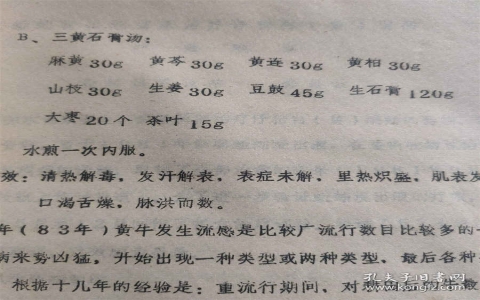 B、三黄石膏汤：
麻黄30g 黄芩30g 黄连30g 黄相30g
山枝30g 生姜30g 豆鼓45g 生石膏120g
大枣20个 茶叶15g
水煎一次内服。
效：清热解毒，发汗解表，表症未解，里热炽盛，肌表发
口渴舌燥，脉洪而数。
年（83年）黄牛发生流感是比较广流行数目比较多的一
病来势凶猛，开始出现一种类型或两种类型，最后各种
根据十几年的经验是：重流行期间，对
孔夫子旧书网